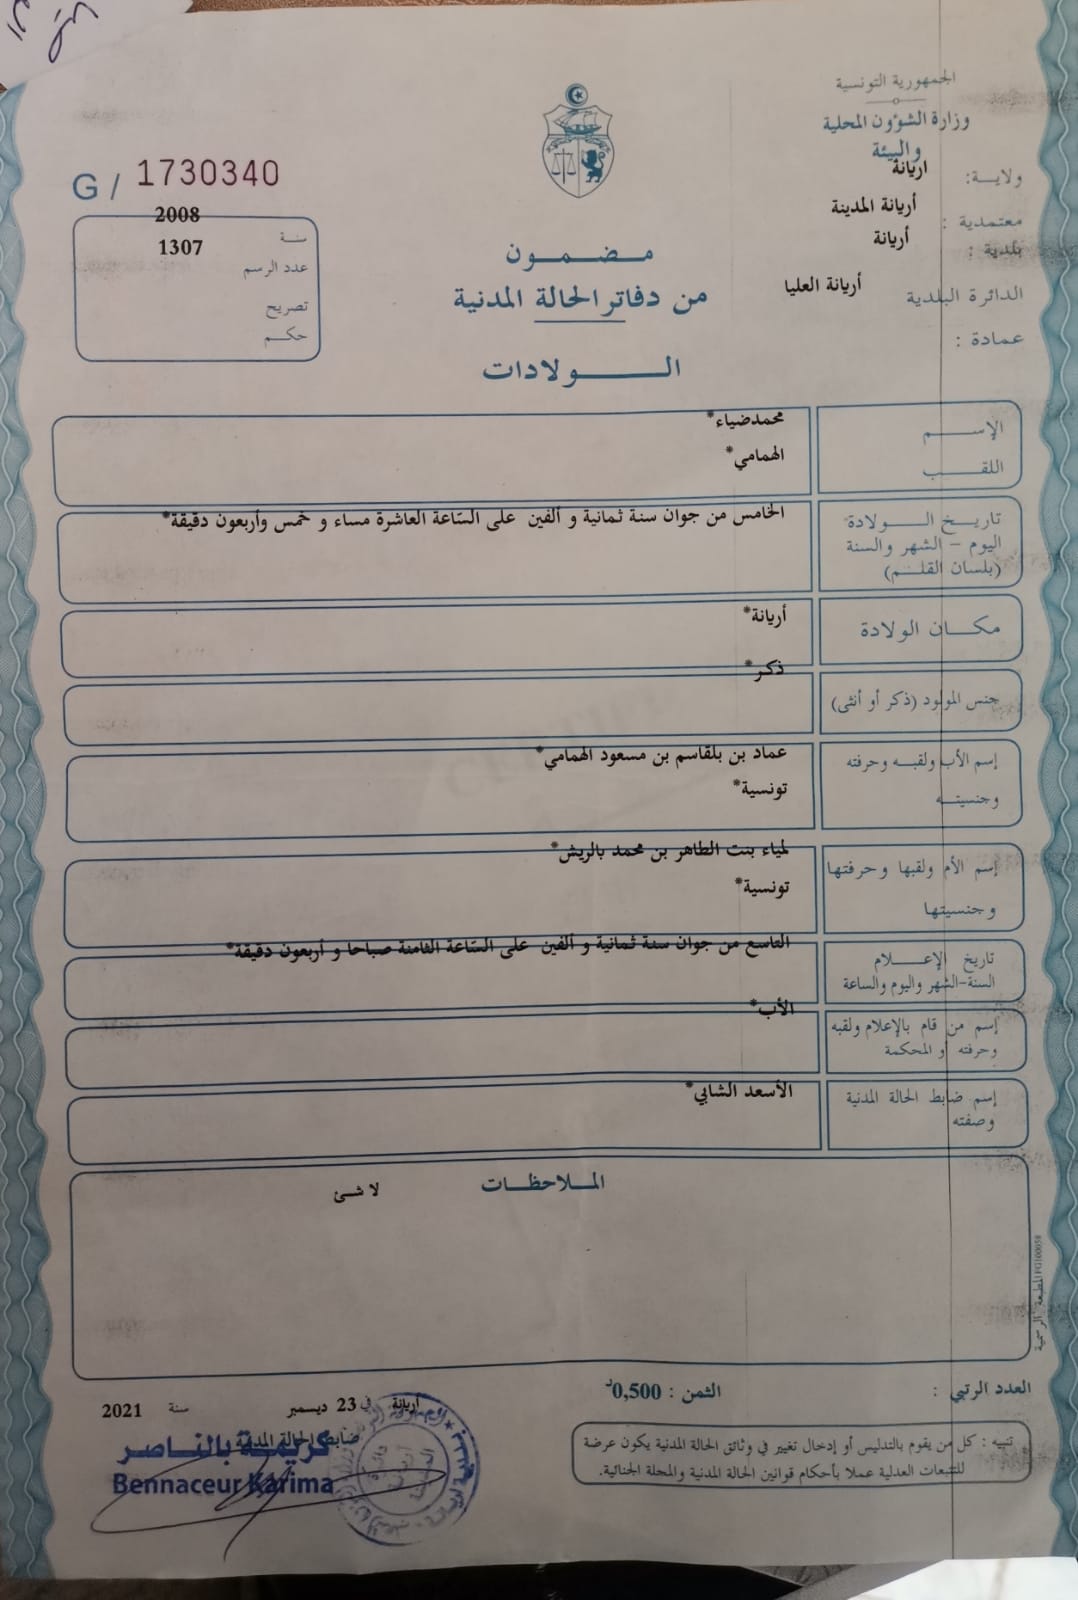 الجمهورية التونسية
وزارة الشؤون المحلية
والبيئة
ولايـــة: اريانة
معتمدية : أريانة المدينة
بلدية : أريانة
الدائرة البلدية أريانة العليا
عمادة :
G / 1730340
سنـة 2008
عدد الرسم 1307
تصريح
حكـم
مـضـمـون
من دفاتر الحالة المدنية
الـــولادات
الإســـم محمدضياء*
اللقـب الهمامي*
تاريـخ الـــولادة الخامس من جوان سنة ثمانية و ألفين على السّاعة العاشرة مساء و خمس وأربعون دقيقة*
اليوم – الشهر والسنة
(بلسان القلـم)
مكـان الولادة أريانة*
جنس المولود (ذكر أو أنثى) ذكر*
إسم الأب ولقبـه وحرفته عماد بن بلقاسم بن مسعود الهمامي*
وجنسيتـه تونسية*
إسم الأم ولقبها وحرفتها لمياء بنت الطاهر بن محمد بالريش*
وجنسيتها تونسية*
تاريخ الإعـــلام التاسع من جوان سنة ثمانية و ألفين على السّاعة الثامنة صباحا و أربعون دقيقة*
السنة-الشهر واليوم والساعة
إسم من قام بالإعلام ولقبه الأب*
وحرفته أو المحكمة
إسم ضابط الحالة المدنية الأسعد الشابي*
وصفته
الملاحظات
لا شئ
المطبعة الرسمية
العدد الرتبي :
الثمن : 0,500د
أريانة في 23 ديسمبر سنة 2021
ضابط الحالة المدنية
كريمة بالناصر
Bennaceur Karima
تنبيه : كل من يقوم بالتدليس أو إدخال تغيير في وثائق الحالة المدنية يكون عرضة
للتتبعات العدلية عملا بأحكام قوانين الحالة المدنية والمجلة الجنائية.